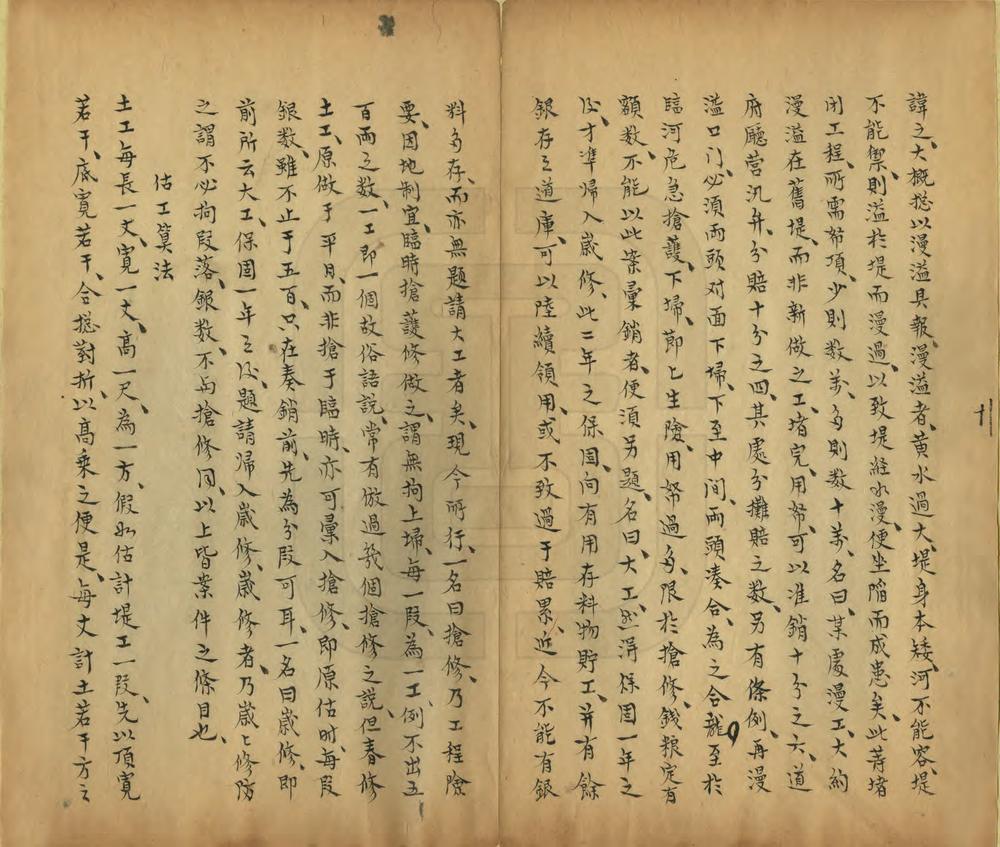 諱之、大概捴以漫溢具報、漫溢者、黄水過大、堤身本矮、河不能容、堤
不能禦、則溢於堤而漫過、以致堤經水漫、便坐陷而成患矣、此等堵
閉工程、所需帑項、少則数萬、多則数十萬、名曰、某處漫工、大約
漫溢在舊堤、而非新做之工、堵完、用帑、可以准銷十分之六、道
府廳营汛弁、分賠十分之四、其處分攤賠之数、另有條例、再漫
溢口门、必須両頭对面下埽、下至中间、両頭凑合、為之合龍、至於
臨河危急搶護、下埽、莭匕生險、用帑過多、限於搶修、錢粮定有
額数、不能以此案彙銷者、便須另題、名曰大工、必淂保固一年之
后、才準歸入嵗修、此二年之保固、向有用存料物貯工、并有餘
銀存之道庫、可以陸續領用、或不致過于賠累、近今不能有銀
料多存、而亦無題請大工者矣、現今所行、一名曰搶修、乃工程險
要、因地制宜、臨時搶護修做、之謂無拘上埽、每一叚、為一工、例不出五
百両之数、一工即一個故俗語説、常有倣過幾個搶修之説、但春修
土工、原做于平日、而非搶于臨時、亦可彙入搶修、即原估时、每叚
銀数、雖不止于五百、只在奏銷前、先為分叚可耳、一名曰嵗修、即
前所云大工、保固一年之后、題請歸入嵗修、嵗修者、乃嵗匕修防
之謂不必拘叚落、銀数、不与搶修同、以上皆案件之條目也、
估工算法
土工每長一丈、寬一丈、高一尺、為一方、假如估計堤工一叚、先以頂寬
若干、底寬若干、合捴對折、以高乘之便是、每丈計土若干方之